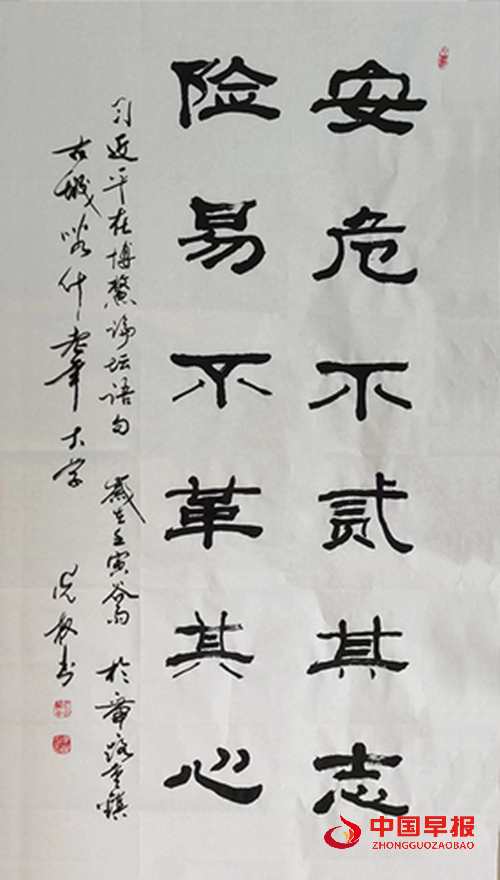 安危不贰其志
险易不革其心
习近平在博鳌论坛语句 岁在壬寅谷雨 於 路重镇
古城喀什老年大学
书
中国早报
ZHONGGUOZAOBAO